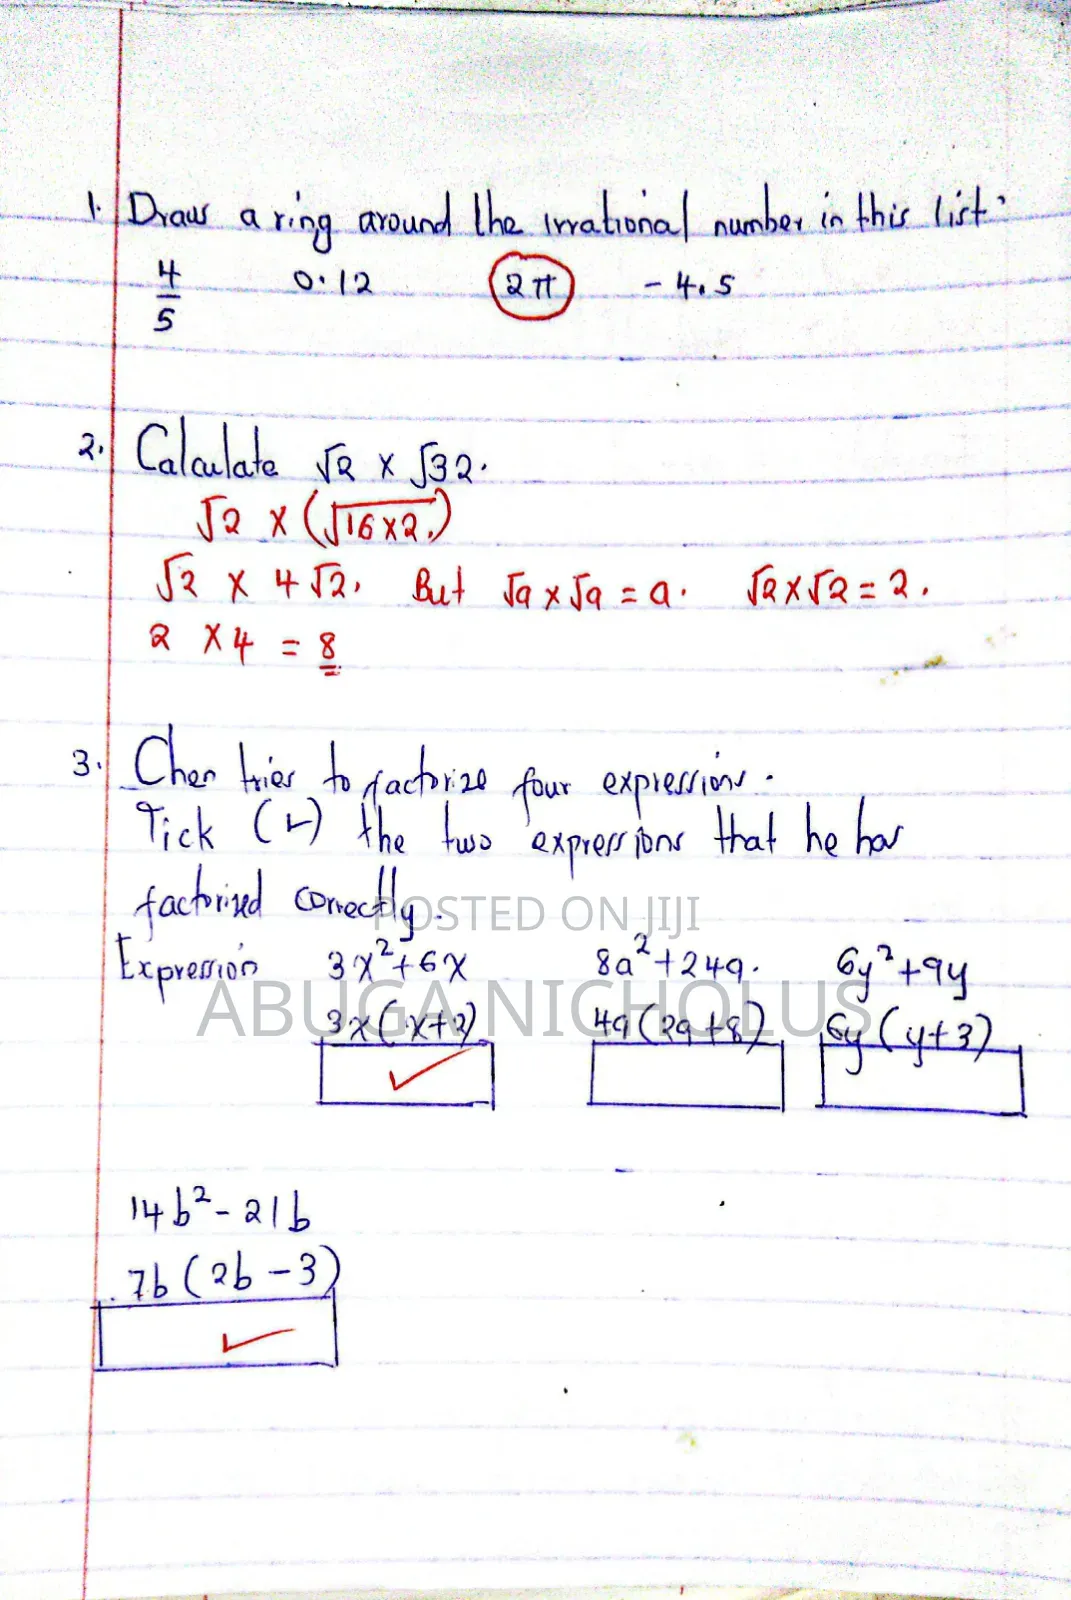 1. Draw a ring around the irrational number in this list:
4/5 0.12 2π -4.5
2. Calculate √2 × √32.
√2 × (√16×2.)
√2 × 4√2. But √a × √a = a. √2 × √2 = 2.
2 × 4 = 8
3. Chen tries to factorize four expressions.
Tick (✓) the two expressions that he has
factorized correctly.
POSTED ON JIJI
Expression 3x²+6x 8a²+24a. 6y²+9y
ABUGA NICHOLUS
3x(x+2) 4a(2a+8) 6y(y+3)
✓
14b²-21b
7b(2b-3)
✓